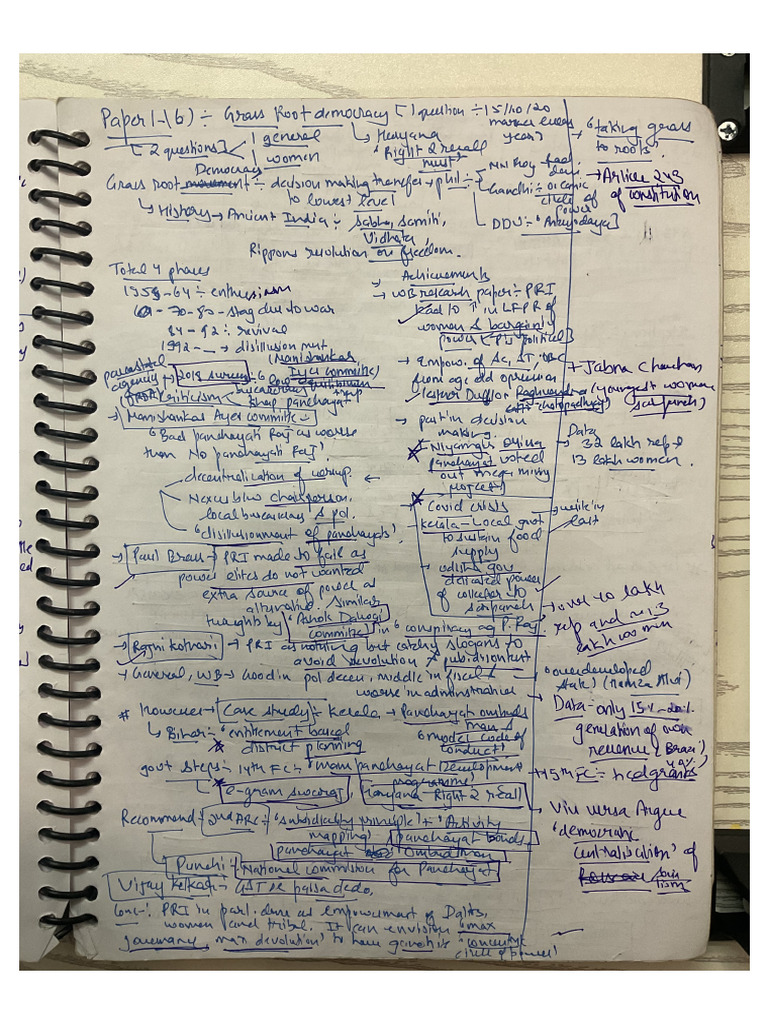 Paper 1-(6) ÷ Grass Root democracy [1 question ÷ 15/10/20
marker every year]
[2 questions] general
women
→ Haryana
"Right 2 recall must"
"taking grass to roots"
→ Article 243 of constitution
Democracy
Grass root movement ÷ decision making transfer → phil ÷
to lowest level
MN Roy
Gandhi ÷ oceanic circle of power
DDU ÷ "Antyodaya"
↳ History → Ancient India ÷ sabha, samiti,
Vidhata
Rippons resolution on freedom.
Total 4 phases
1958-64 ÷ enthusiasm
69-70-80 - stag due to war
84-92 : revival
1992 - __ → disillusion ment
(Manishankar Iyer committee)
parastatal agency → 2018 survey
criticism
→ Manishankar Ayer committee
"Bad panchayati Raj is worse
than No panchayati Raj".
decentralization of corrup. ←
Nexus b/w chairperson,
local bureaucracy & pol.
"disillusionment of panchayats".
→ Achievements
→ WB research paper ÷ PRI
lead to ↑ in LFPR of
women & bargaining
power (Political)
→ Empow. of SC, ST,
from age old oppression
→ Esther Duflo & Raghvendra
chattopadhyay
→ part in decision
making
Niyamgiri
panchayat voted
out mega mining
project
→ Jabna Chauhan
(youngest woman
sarpanch)
Data
32 lakh rep &
13 lakh women.
→ Covid crisis
Kerala - Local govt
to sustain food
supply
→ odisha gov
delicated power
of collector to
sarpanch
→ Paul Brass → PRI made to fail as
power elites do not wanted
extra source of power as
alternative. Similar
thoughts by "Ashok Dalwai
committee" in "conspiracy ag P. Raj"
→ Rajni Kothari → PRI as nothing but catchy slogans to
avoid devolution &
→ General, WB → Good in pol decen, middle in fiscal &
worse in administrative
→ over 40 lakh
rep and ~ 13
lakh women
"overdeveloped
state" (Hamza Alvi)
→ Data - only 15%-20%
generation of own
revenue (Brazil
→ 15th FC ÷ hcd grants
→ Viv versa Argue
"democratic
centralisation" of
# However → Case study ÷ Kerala → Panchayat ombuds
man &
"model code of
conduct)
↳ Bihar ÷ entitlement based
district planning
govt steps ÷ 14th FC ÷ "Mom panchayat Development
programme
e-gram swaraj, Haryana - Right 2 recall
Recommend ÷ 2nd ARC ÷ "subsidiarity principle" + "Activity
mapping" panchayat bonds
panchayat Ombudsman
Punchi ÷ National commission for Panchayat
Vijay Kelkar → GST ka paisa dedo.
Conc ÷ PRI in part. dene as empowerment of Dalits,
women and tribal. It can envision "max
governance, max devolution" to have gandhi's "concentric
circle of power"